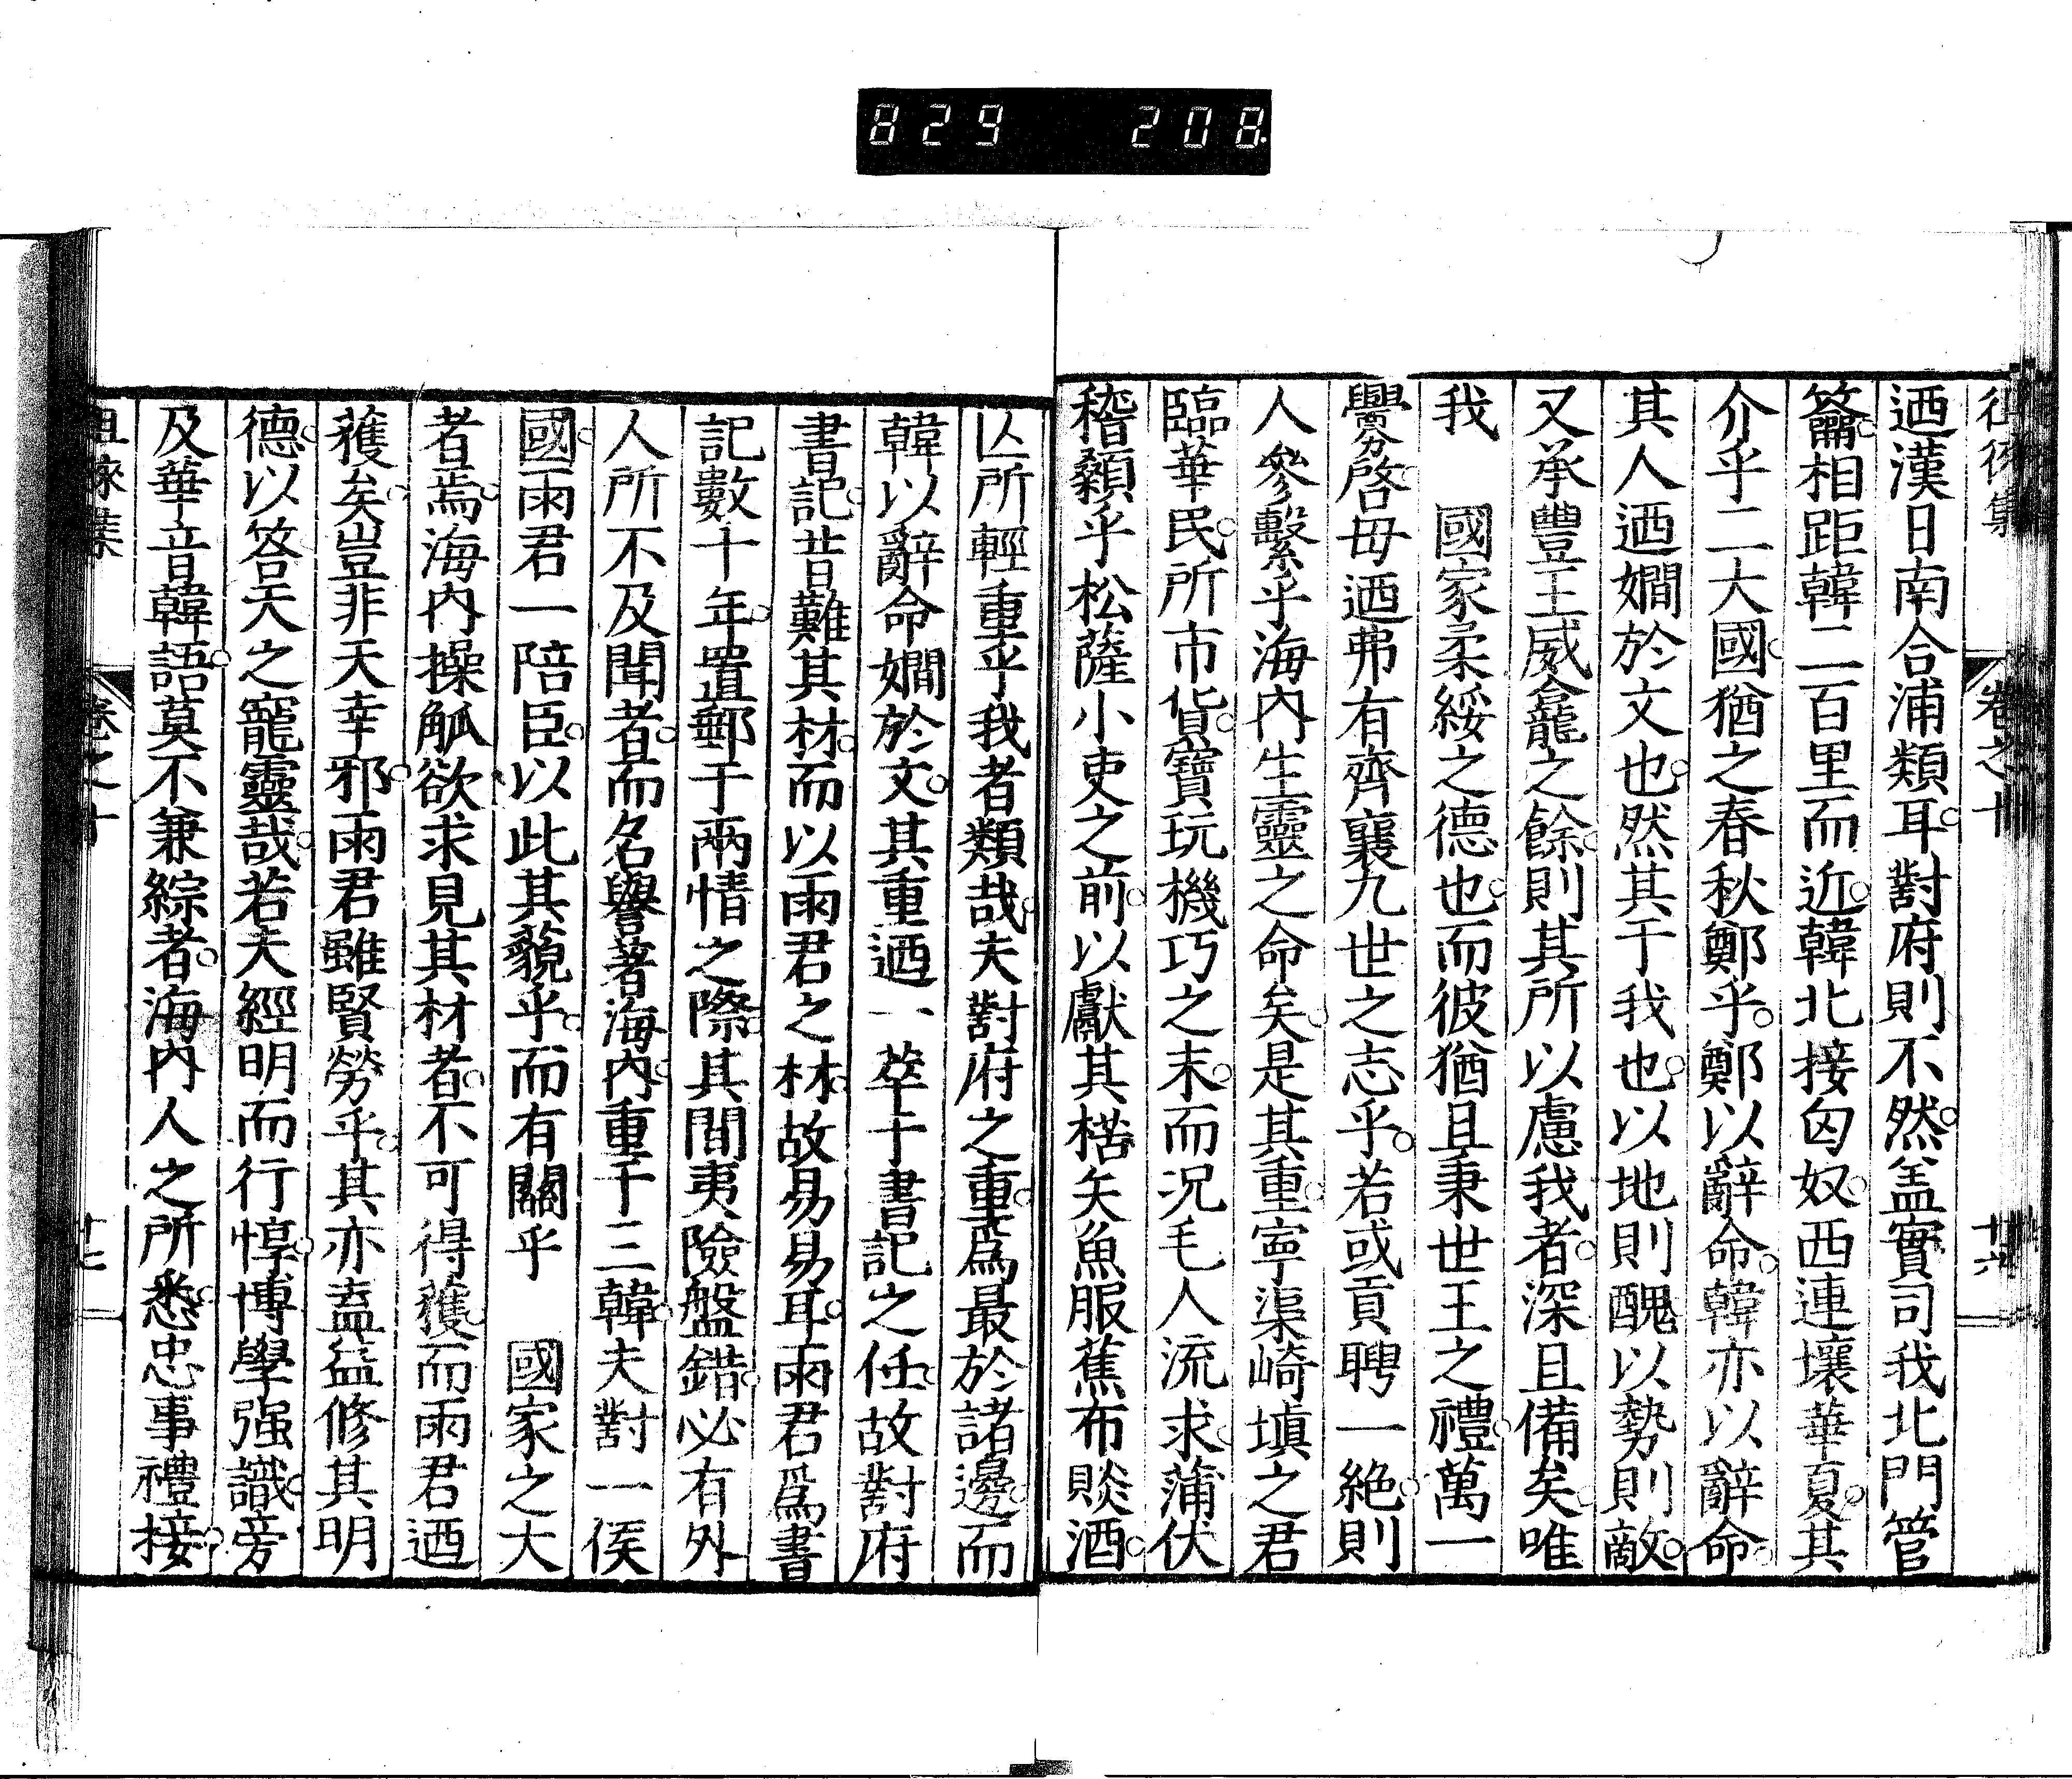 829 208
徂徠集 卷之十 十六
迺漢日南合浦類耳對府則不然盖實司我北門管
籥相距韓二百里而近韓北接匈奴西連壤華夏其
介乎二大國猶之春秋鄭乎鄭以辭命韓亦以辭命
其人迺嫺於文也然其于我也以地則醜以勢則敵
又承豐王威龕之餘則其所以慮我者深且備矣唯
我 國家柔綏之德也而彼猶且秉世王之禮萬一
釁啓毋迺弗有齊襄九世之志乎若或貢聘一絶則
人參繫乎海內生靈之命矣是其重寧渠崎塡之君
臨華民所市貨寶玩機巧之末而况毛人流求蒲伏
稽顙乎松薩小吏之前以獻其楛矢魚服蕉布賧酒
亾所輕重乎我者類哉夫對府之重爲最於諸邊而
韓以辭命嫺於文其重迺一萃于書記之任故對府
書記昔難其材而以雨君之林故易易耳雨君爲書
記數十年置郵于兩情之際其間夷險盤錯必有外
人所不及聞者而名譽著海內重于三韓夫對一侯
國雨君一陪臣以此其藐乎而有關乎 國家之大
者焉海內操觚欲求見其材者不可得獲而雨君迺
獲矣豈非天幸邪雨君雖賢勞乎其亦盍益修其明
德以答天之寵靈哉若夫經明而行惇博學强識旁
及華音韓語莫不兼綜者海內人之所悉忠事禮接
徂徠集 卷之十 十七